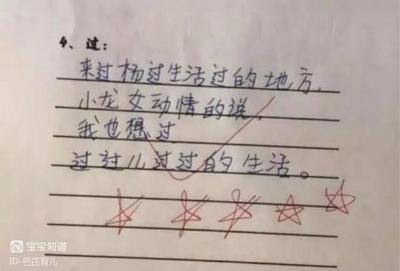 4、过：
来过杨过生活过的地方，
小龙女动情的说，
我也想过
过过儿过过的生活。
宝宝知道
ID-芭芘育儿